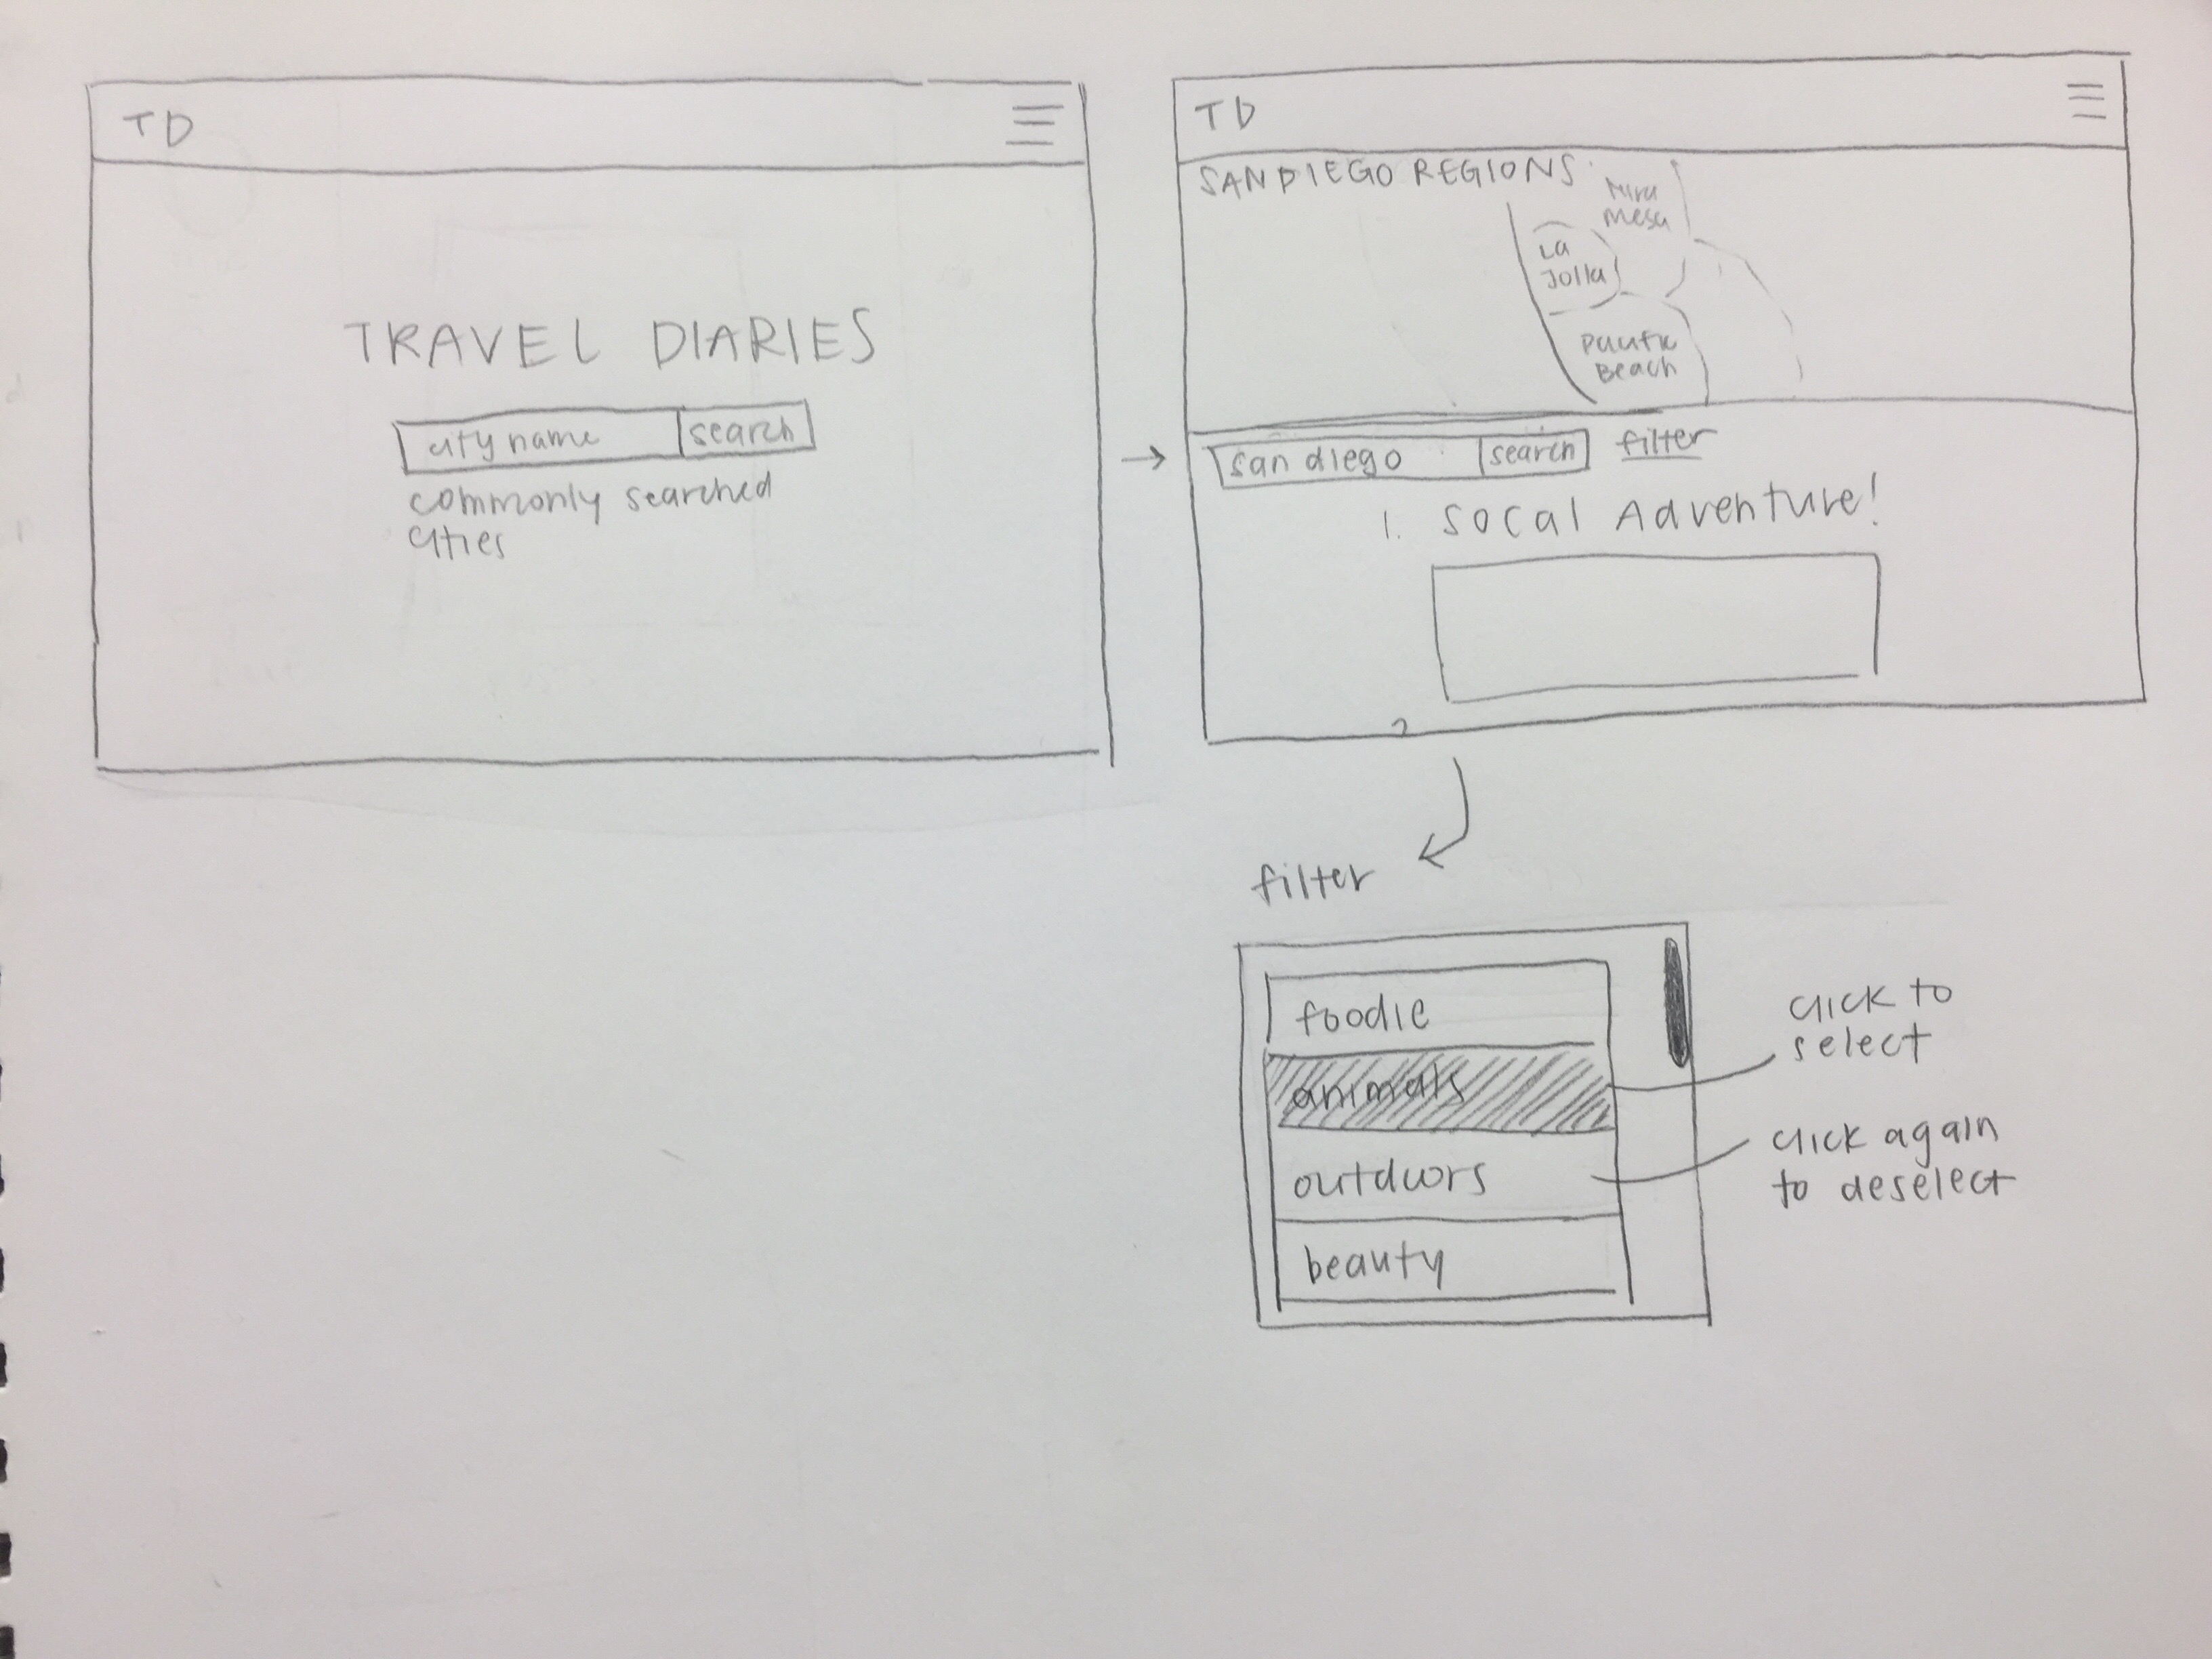 TD
TRAVEL DIARIES
city name search
commonly searched
cities
TD
SAN DIEGO REGIONS
Mira
Mesa
La
Jolla
Pacific
Beach
san diego search filter
1. SoCal Adventure!
2
filter
foodie
animals
outdoors
beauty
click to
select
click again
to deselect